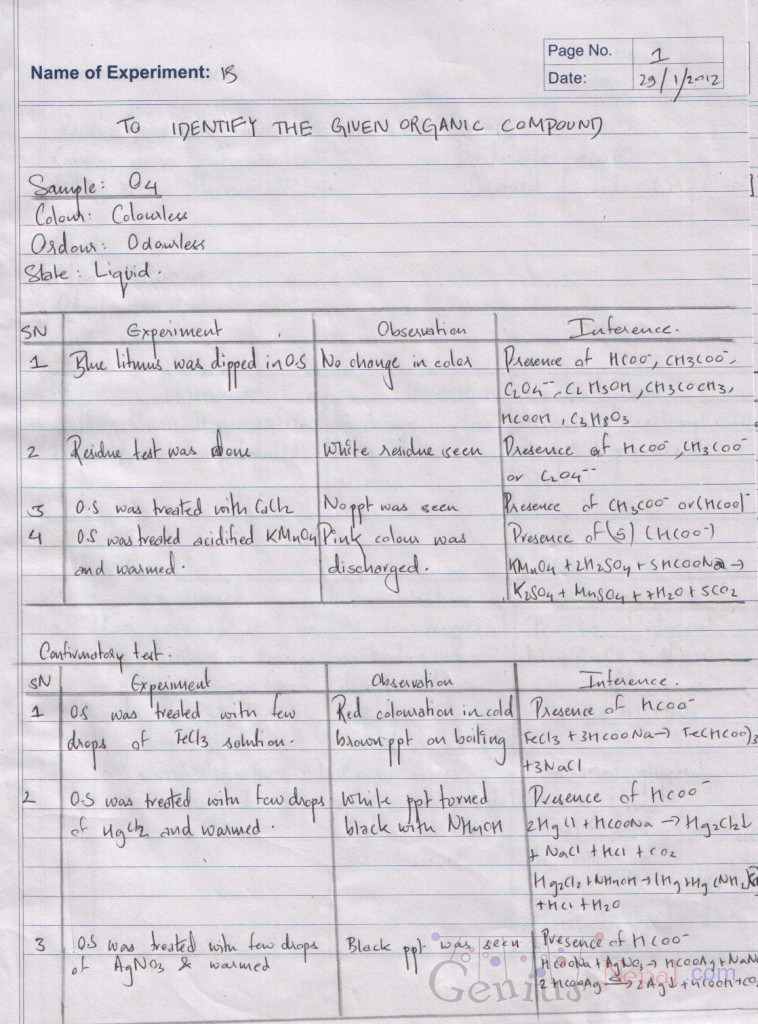 Page No. 1
Name of Experiment: 13
Date: 29/1/2012
TO IDENTIFY THE GIVEN ORGANIC COMPOUND
Sample: O4
Colour: Colourless
Ordour: Odourless
State: Liquid.
SN Experiment Observation Inference.
1 Blue litmus was dipped in O.S No change in color Presence of HCOO⁻, CH3COO⁻,
C2O4⁻⁻, C2H5OH, CH3COCH3,
HCOOH, C3H8O3
2 Residue test was done White residue seen Presence of HCOO⁻, CH3COO⁻
or C2O4⁻⁻
3 O.S was treated with CaCl2 No ppt was seen Presence of CH3COO⁻ or (HCOO)⁻
4 O.S was treated acidified KMnO4 Pink colour was Presence of (HCOO⁻)
and warmed. discharged. KMnO4 + 2H2SO4 + 5HCOONa →
K2SO4 + MnSO4 + 7H2O + 5CO2
Confirmatory test.
SN Experiment Observation Inference.
1 O.S was treated with few Red colouration in cold Presence of HCOO⁻
drops of FeCl3 solution. brown ppt on boiling FeCl3 + 3HCOONa → Fe(HCOO)3
+3NaCl
2 O.S was treated with few drops White ppt turned Presence of HCOO⁻
of HgCl2 and warmed. black with NH4OH 2HgCl + HCOONa → Hg2Cl2↓
+ NaCl + HCl + CO2
Hg2Cl2 + NH4OH → Hg + Hg(NH2)
+HCl + H2O
3 O.S was treated with few drops Black ppt was seen Presence of HCOO⁻
of AgNO3 & warmed HCOONa + AgNO3 → HCOOAg + NaN
2HCOOAg → 2Ag↓ + HCOOH + CO2
GeniusNepal.com